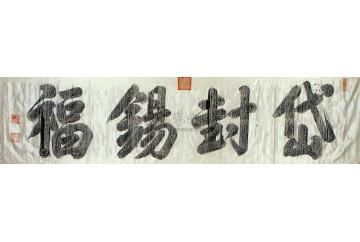 岱封錫福